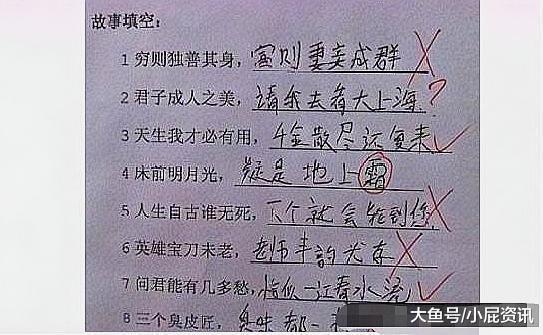 故事填空:
1 穷则独善其身, 富则妻妾成群
2 君子成人之美, 请我去看大上海?
3 天生我才必有用, 千金散尽还复来
4 床前明月光, 疑是地上霜
5 人生自古谁无死, 下个就会轮到您
6 英雄宝刀未老, 老师丰韵尤存
7 问君能有几多愁, 恰似一江春水流
8 三个臭皮匠, 臭味都一
大鱼号/小屁资讯